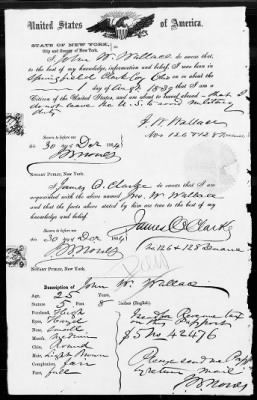 United States of America.
STATE OF NEW YORK,
City and County of New York.
I, John W. Wallace do swear that,
to the best of my knowledge, information and belief I was born in
Springfield Clark Coy Ohio on or about the
1 day of 1839 that I am a
Citizen of the United States, and am about to travel abroad that I
do not leave the U.S. to avoid military
duty
J. W. Wallace
Sworn to before me
30 Dec 1864
NOTARY PUBLIC, New York.
I James O. Clarke do swear that I am
acquainted with the above Jno. W. Wallace
and that the facts above stated by him are true to the best of my
knowledge and belief.
James O. Clarke
126 & 128 Duane
Sworn to before me
30 Dec 1864
NOTARY PUBLIC, New York.
Description of John W. Wallace
Age, 25 Years
Stature, 5 Feet 8 Inches (English)
Forehead, High
Eyes, Hazel
Nose, Small
Mouth, Medium
Chin, Round
Hair, Light Brown
Complexion, fair
Face, full
Revenue tax
on this Passport
$5 No 42476
Please send me Passpt
by return mail